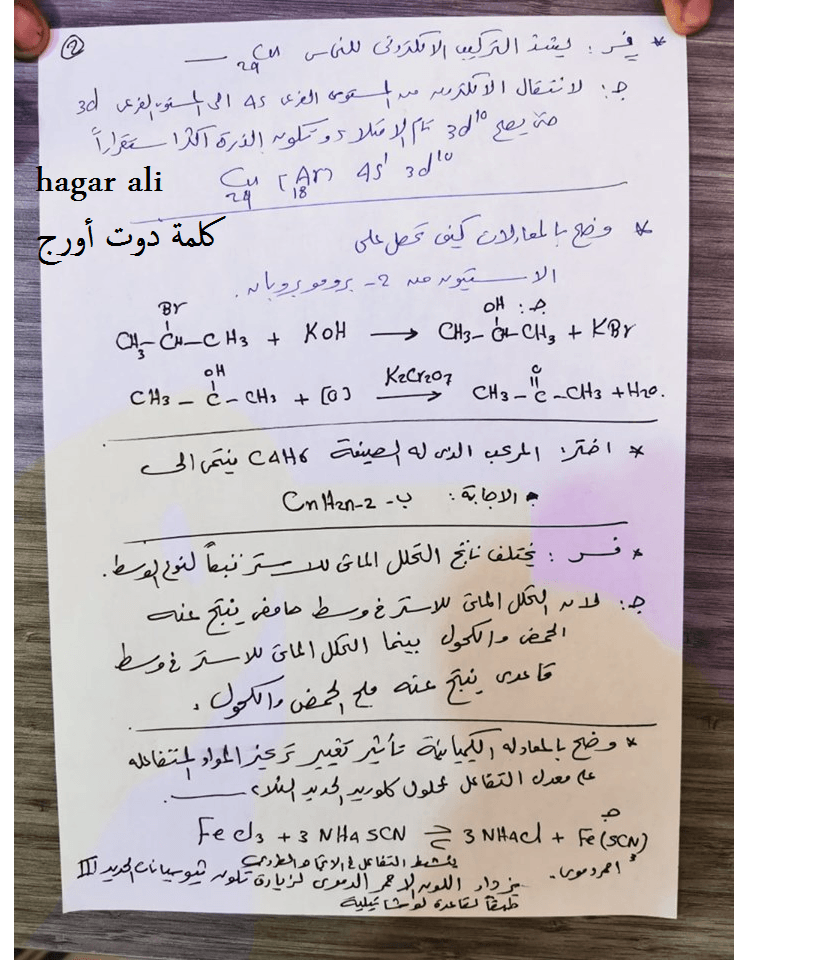 ②
* فسر : يشذ التركيب الالكترونى للنحاس 29Cu
جـ: لانتقال الالكترون من المستوى الفرعى 4s الى المستوى الفرعى 3d
حتى يصبح 3d10 تام الامتلاء وتكون الذرة أكثر استقراراً
29Cu [18Ar] 4s1 3d10
hagar ali
كلمة دوت أورج
* وضح بالمعادلات كيف تحصل على
الاسيتون من 2- بروموبروبان.
جـ:
Br OH
CH3-CH-CH3 + KOH → CH3-CH-CH3 + KBr
OH K2Cr2O7 O
CH3 - C - CH3 + [O] → CH3 - C - CH3 + H2O.
* اختر: المركب الذى له الصيغة C4H6 ينتمى الى
• الاجابة: ب- CnH2n-2
* فسر : يختلف ناتج التحلل المائى للاستر تبعاً لنوع الوسط.
جـ: لان التحلل المائى للاستر فى وسط حامضى ينتج عنه
الحمض والكحول بينما التحلل المائى للاستر فى وسط
قاعدى ينتج عنه ملح الحمض والكحول.
* وضح بالمعادله الكيميائية تأثير تغيير تركيز المواد المتفاعله
على معدل التفاعل لمحلول كلوريد الحديد الثلاثى
جـ
FeCl3 + 3 NH4SCN ⇌ 3 NH4Cl + Fe(SCN)3
احمر دموى.
ينشط التفاعل فى الاتجاه الطردى
يزداد اللون الاحمر الدموى لزيارة تكون ثيوسيانات الحديد III
طبقاً لقاعدة لوشاتيلية